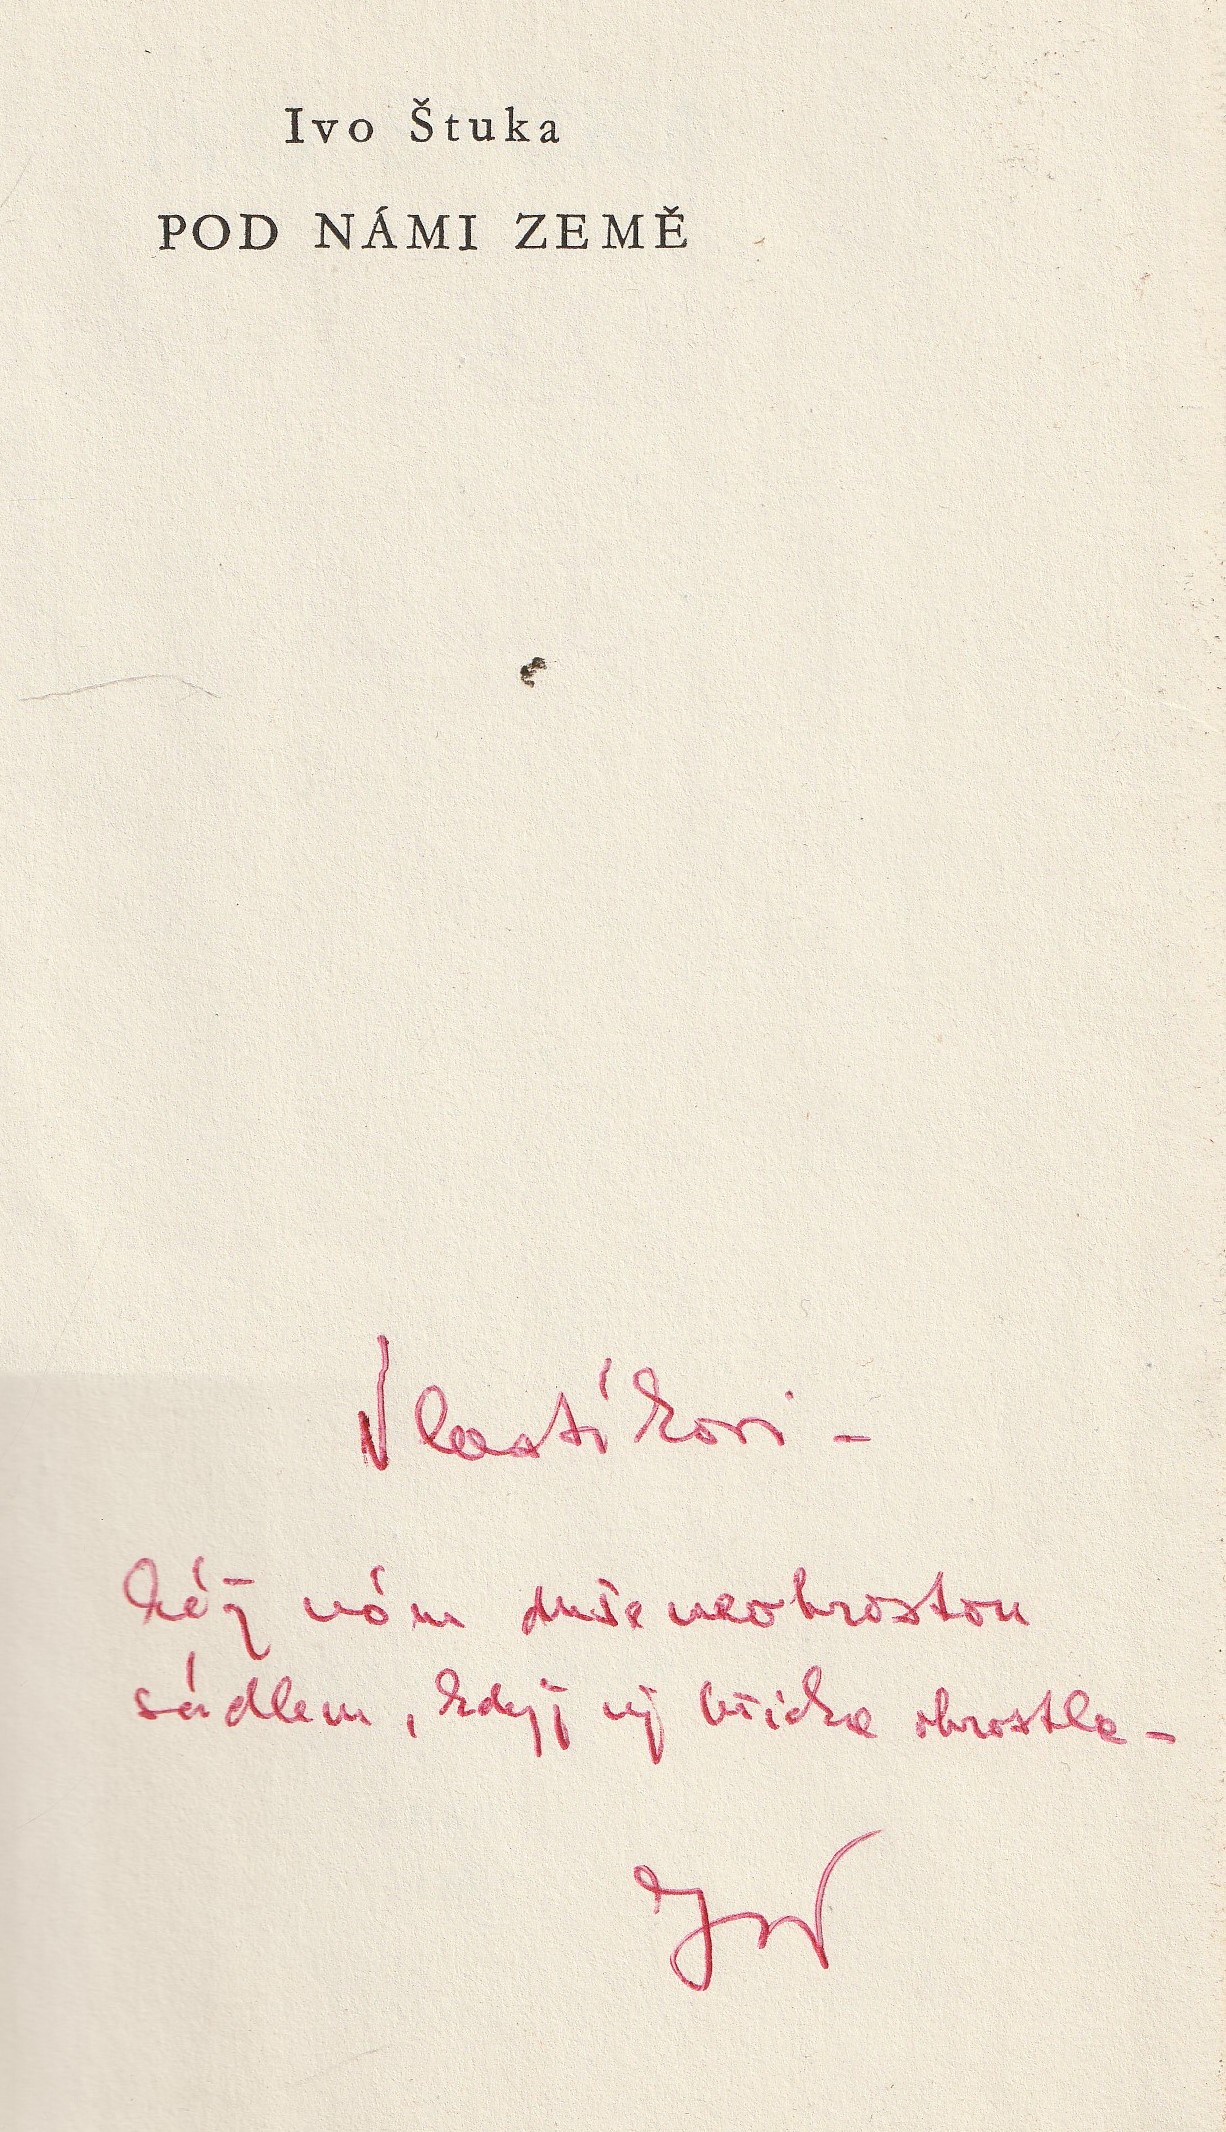 Ivo Štuka
POD NÁMI ZEMĚ
Vlastíkovi –
kéž nám duše neobrostou
sádlem, když už bříška obrostla –
Ivo